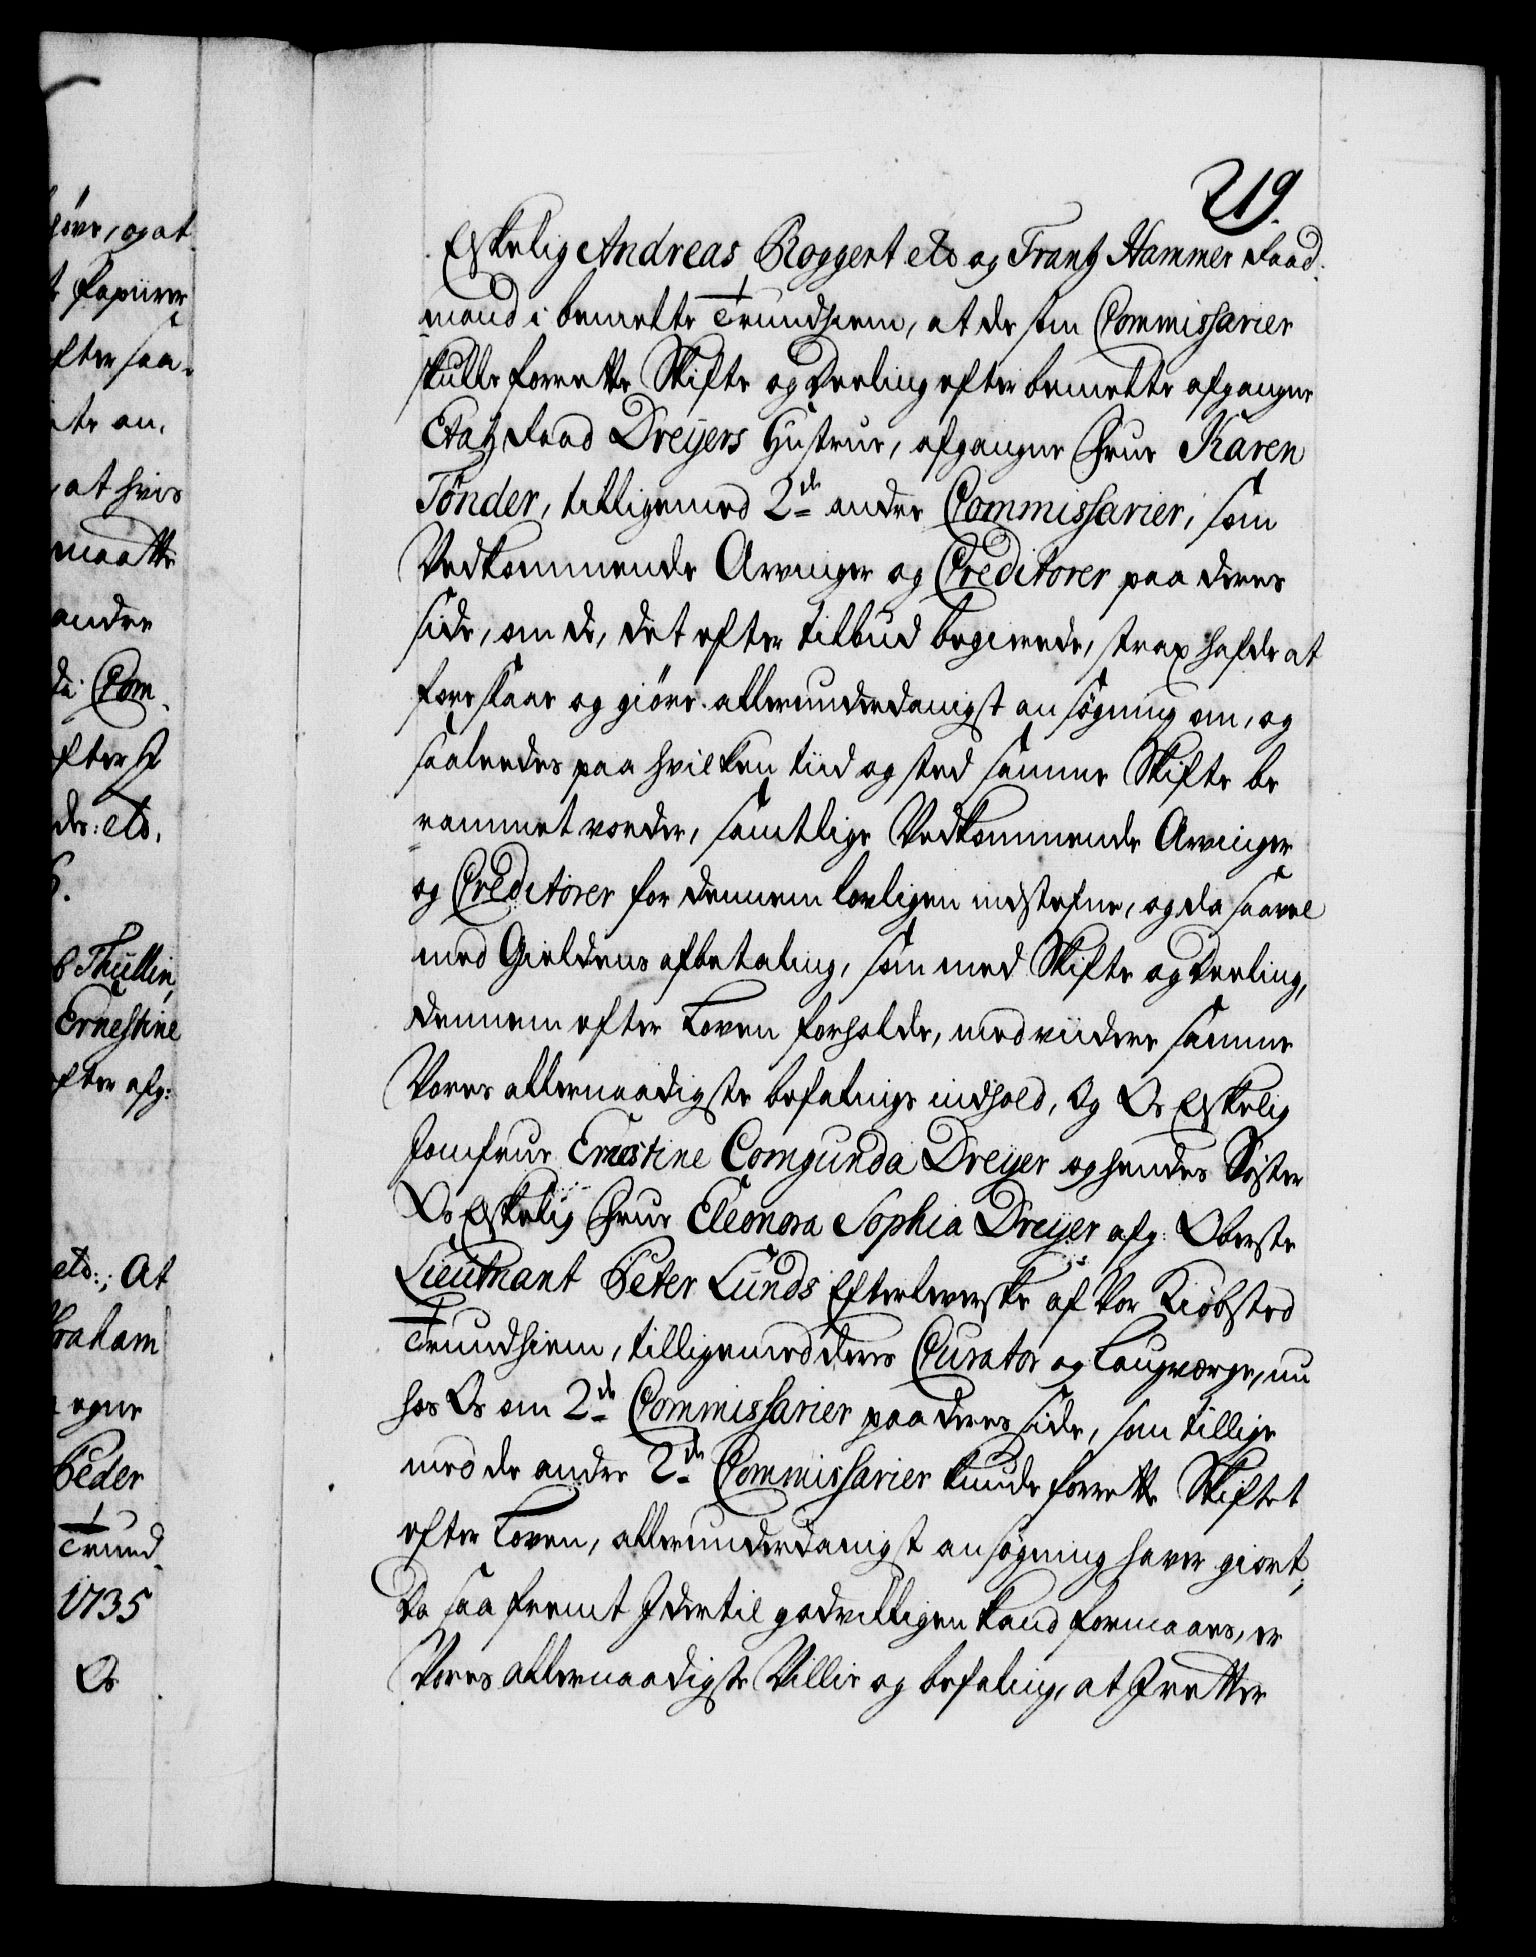 giøre, og at
t Papiirer
efter saa-
te an,
at hvis
maatte
andre
da Com-
efter St
des: etc.
6.
b Thüllin,
Ernestine
efter afg:
etc:, At
braham
egne
Peder
Trund-
1735
Os
219.
Elskelig Andreas Roggert etc og Frantz Hammer Raad-
mand i bemelte Trundhiem, at de som Commissarier
skulle forrette Skifte og Deeling efter bemelte afgangne
Etatz Raad Dreyers Hustrue, afgangne Frue Karen
Tønder, tilligemed 2de andre Commissarier, som
Vedkommende Arvinger og Creditorer paa deres
side, om de, det efter tilbud begierede, strax hafde at
foreslaae og giøre allerunderdanigst ansøgning om, og
saaleedes paa hvilken tiid og sted samme Skifte be
rammet vorder, samtlige Vedkommende Arvinger
og Creditorer for dennem lovligen indstefne, og da saavel
med Gieldens afbetaling, som med Skifte og Deeling,
dennem efter Loven forholde, med viidere samme
Vores allernaadigste befalings indhold, Og Os Elskelig
Jomfrue Ernestine Comgunda Dreyer og hendes Søster
Os Elskelig Frue Eleonora Sophia Dreyer afg: Oberste
Lieutnant Peter Lunds Efterleverske af Vor Kiøbsted
Trundhiem, tilligemed deres Curator og Laugværge, nu
hos Os om 2de Commissarier paa deres side, som tillige
med de andre 2de Commissarier kunde forrette Skiftet
efter Loven, allerunderdanigst ansøgning haver giort;
Da saafremt I dertil godvilligen kand formaaes, er
Vores allernaadigste Villie og befaling, at I retter